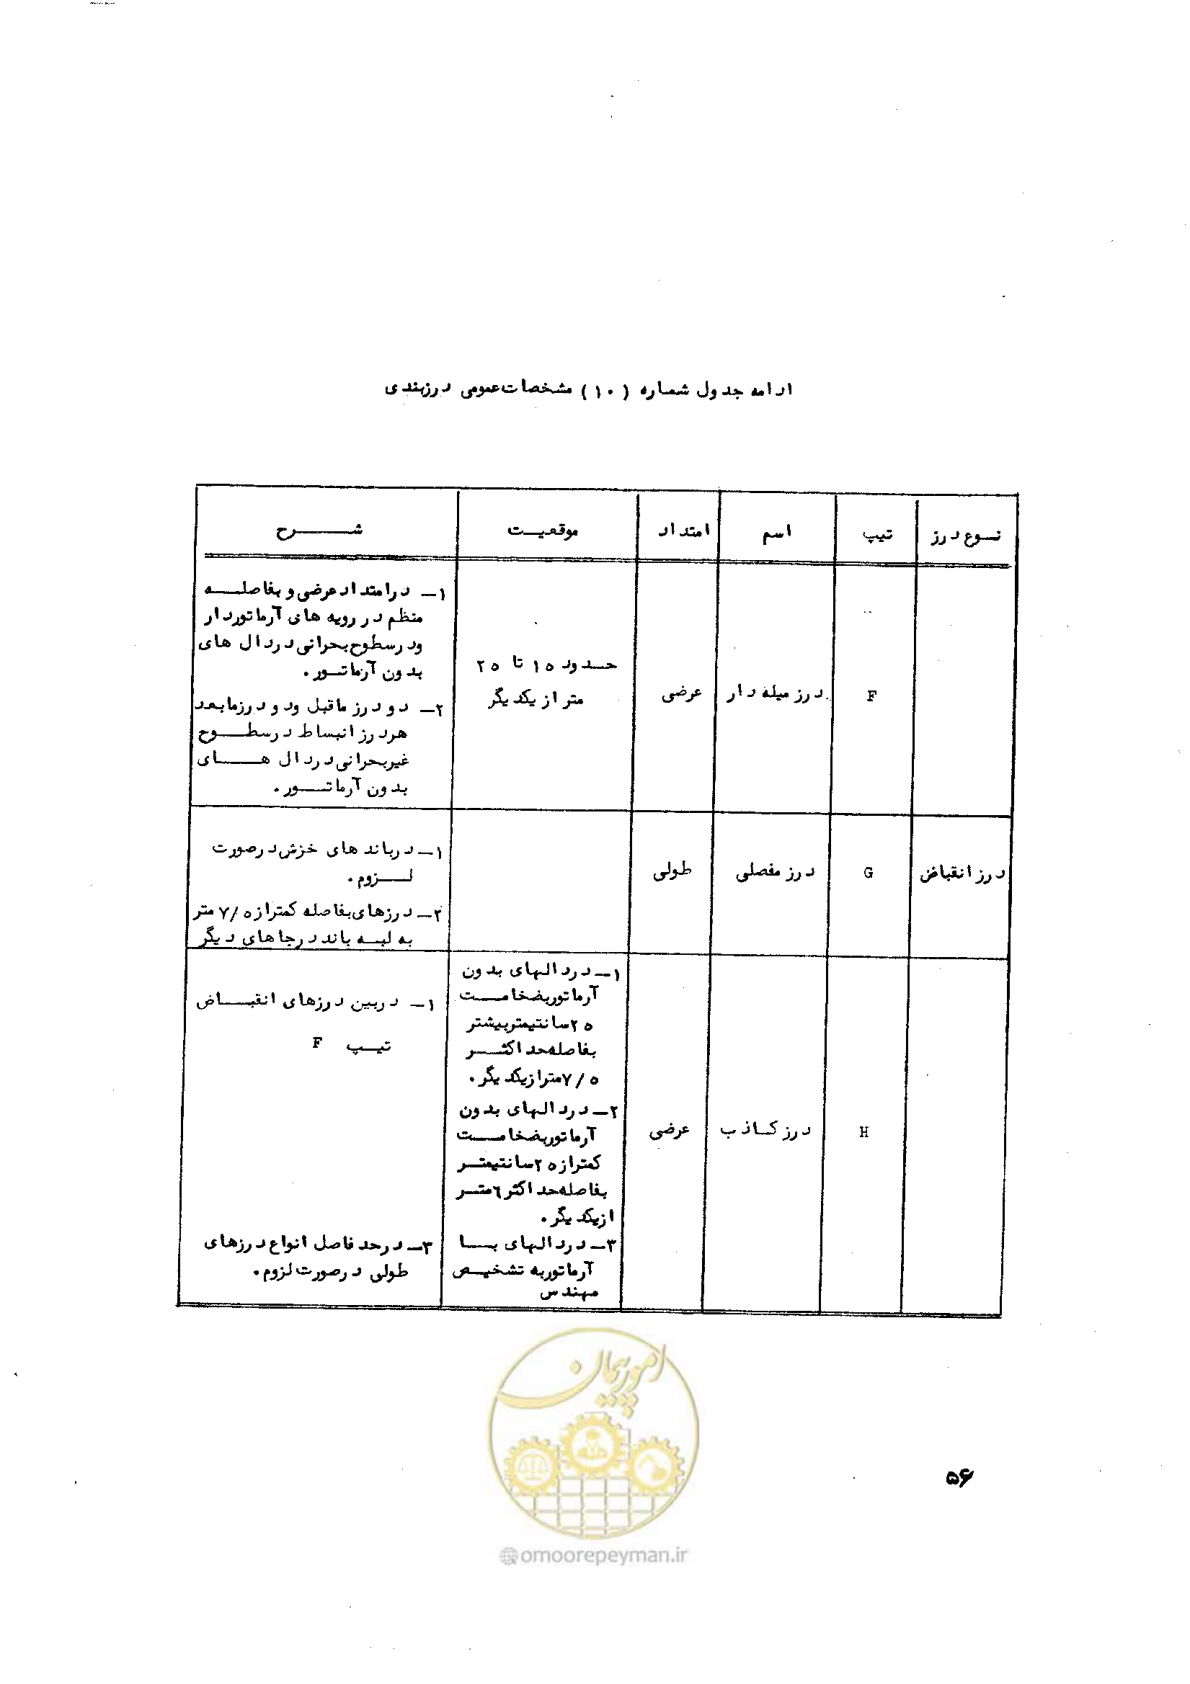 ادامه جدول شماره (۱۰) مشخصات عمومی درزبندی
نوع درز
تیپ
اسم
امتداد
موقعیت
شرح
F
درز میله دار
عرضی
حدود ۱۵ تا ۲۵
متر از یکدیگر
۱- در امتداد عرضی و بفاصله
منظم در رویه های آرماتوردار
ودر سطوح بحرانی در دال های
بدون آرماتور.
۲- دو درز ماقبل ود و درز مابعد
هر درز انبساط در سطوح
غیربحرانی در دال های
بدون آرماتور.
درز انقباض
G
درز مفصلی
طولی
۱- در باند های خزش در صورت
لزوم.
۲- درزهای بفاصله کمتر از ۷/۵ متر
به لبه باند در جاهای دیگر
H
درز کاذب
عرضی
۱- در دالهای بدون
آرماتور بضخامت
۲۵ سانتیمتر بیشتر
بفاصله حداکثر
۷/۵ متر از یکدیگر.
۲- در دالهای بدون
آرماتور بضخامت
کمتر از ۲۵ سانتیمتر
بفاصله حداکثر ۶ متر
از یکدیگر.
۳- در دالهای با
آرماتور به تشخیص
مهندس
۱- در بین درزهای انقباض
تیپ F
۳- در حد فاصل انواع درزهای
طولی در صورت لزوم.
امور پیمان
@omoorepeyman.ir
۵۶